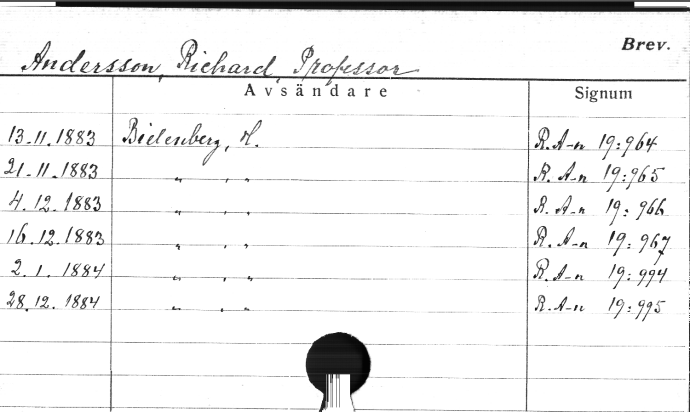 Brev.
Andersson, Richard, Professor
Avsändare Signum
13.11.1883 Bielenberg, H. R. A-n 19:964
21.11.1883 „ , „ R. A-n 19:965
4.12.1883 „ , „ R. A-n 19:966
16.12.1883 „ , „ R. A-n 19:967
2.1.1884 „ , „ R. A-n 19:994
28.12.1884 „ , „ R. A-n 19:995